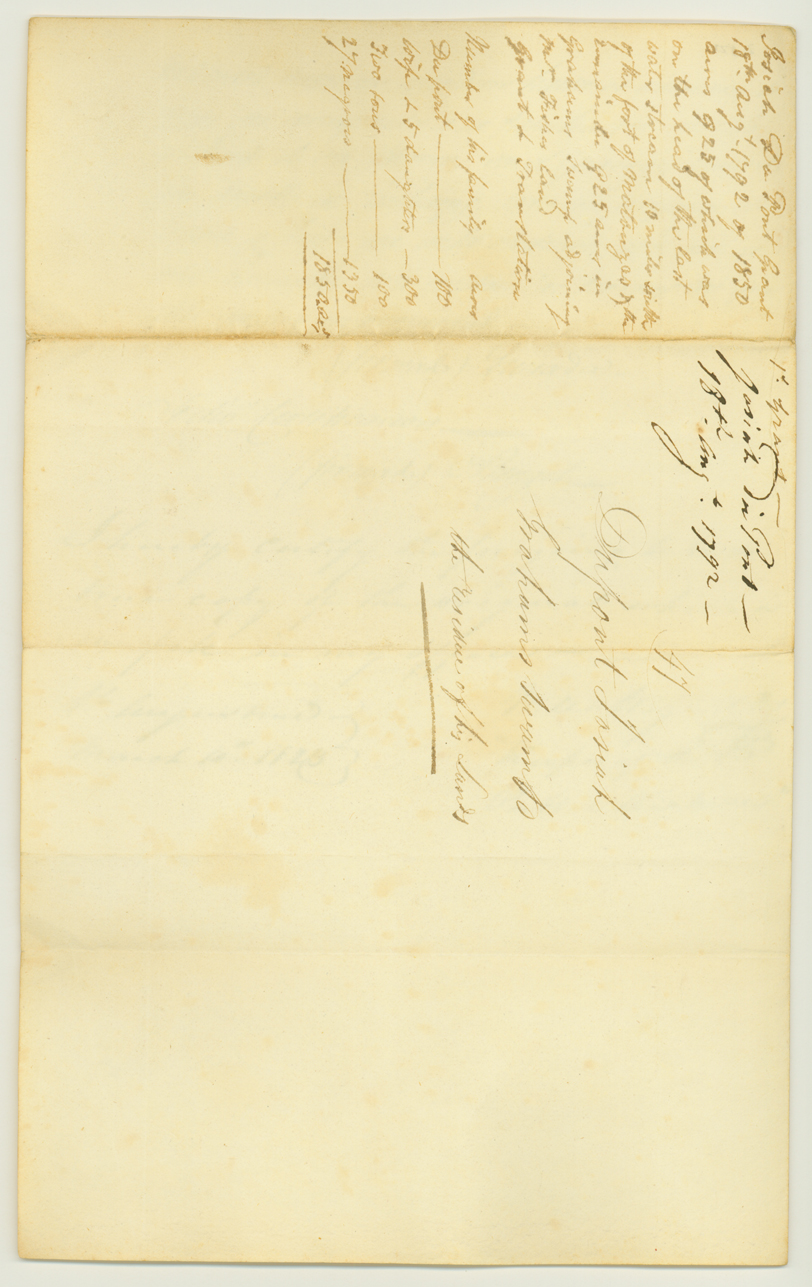 Josiah Du Pont Grant
18th. Augt. 1792 of 1850
acres 925 of which was
on the head of the last
water stream 10 miles South
of the fort of Matanzas & the
remainder 925 acres in
Grahams Swamp adjoining
Mr. Fishes land
Grant & Translation
Number of his family Acres
Du pont — 100
Wife & 5 daughters — 300
Two sons — 100
27 Negroes — 1350
1850 acres
1st. Grant —
Josiah Du Pont —
18th. Augt. 1792 —
Dupont Josiah
Grahams Swamp
the residue of his Lands